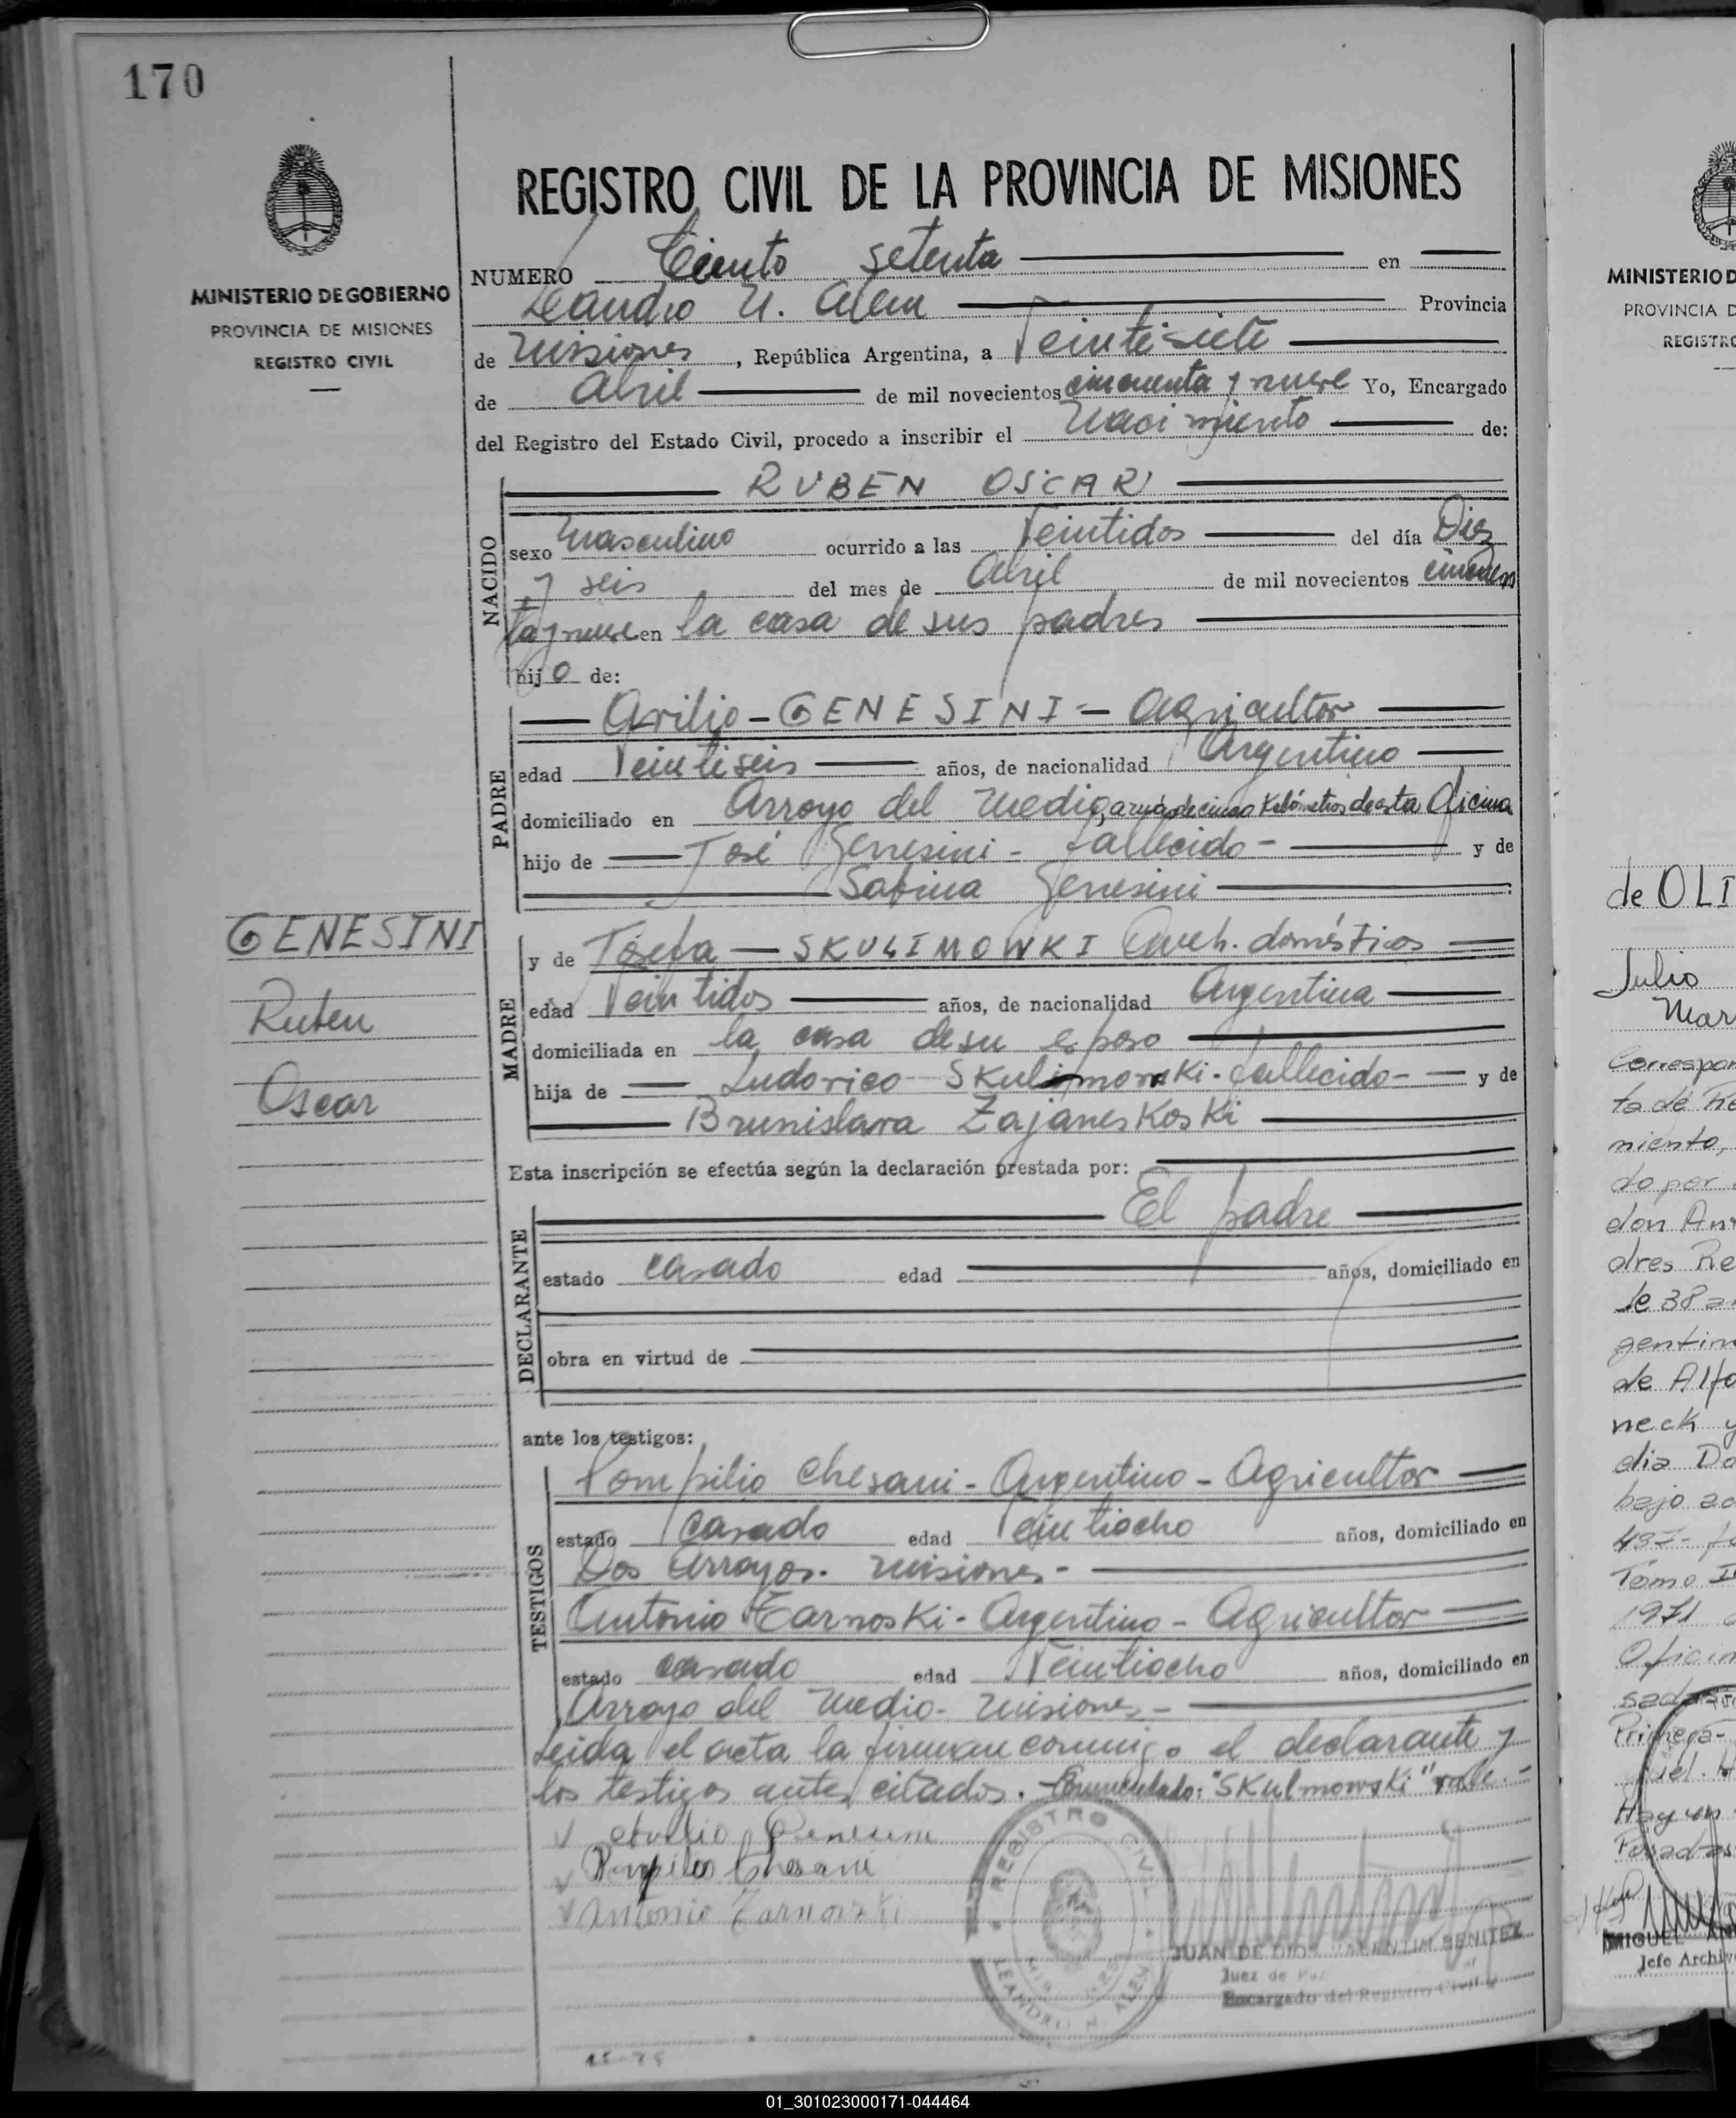 170
MINISTERIO DE GOBIERNO
PROVINCIA DE MISIONES
REGISTRO CIVIL
REGISTRO CIVIL DE LA PROVINCIA DE MISIONES
NUMERO Ciento setenta en
Leandro N. Alem Provincia
de Misiones, República Argentina, a Veintisiete
de Abril de mil novecientos cincuenta y nueve Yo, Encargado
del Registro del Estado Civil, procedo a inscribir el Nacimiento de:
NACIDO
RUBEN OSCAR
sexo Masculino ocurrido a las Veintidos del día Diez
y seis del mes de Abril de mil novecientos cincuen
ta y nueve en la casa de sus padres
hijo de:
PADRE
Avilio - GENESINI - Agricultor
edad Veintiseis años, de nacionalidad Argentino
domiciliado en Arroyo del Medio, a más de cinco Kilómetros de esta Oficina
hijo de José Genesini - fallecido - y de
Sabina Genesini
GENESINI
Ruben
Oscar
MADRE
y de Josefa - SKULIMOWKI Queh. domésticos
edad Veintidos años, de nacionalidad Argentina
domiciliada en la casa de su esposo
hija de Ludovico Skulimowski - fallecido - y de
Brunislava ZajanesKosKi
Esta inscripción se efectúa según la declaración prestada por:
DECLARANTE
El padre
estado casado edad años, domiciliado en
obra en virtud de
ante los testigos:
TESTIGOS
Pompilio Chesani - Argentino - Agricultor
estado casado edad Veintiocho años, domiciliado en
Dos Arroyos - Misiones -
Antonio TarnosKi - Argentino - Agricultor
estado casado edad Veintiocho años, domiciliado en
Arroyo del Medio - Misiones -
Leida el acta la firman conmigo el declarante y
los testigos antes citados. - Enmendado: "SKulmowski" vale. -
Avilio Genesini
Pompilio Chesani
Antonio Tarnowski
REGISTRO CIVIL
LEANDRO N. ALEM
JUAN DE DIOS VALENTIN BENITEZ
Juez de Paz
Encargado del Registro Civil
15-75
MINISTERIO D
PROVINCIA D
REGISTRO
de OLI
Julio
Mar
Correspon
ta de Re
niento,
do por
don An
dres Re
de 38 a
gentin
de Alfo
neck y
dia Do
bajo ac
Tomo I
1971
Oficin
Primera-
Hay un
Posadas
MIGUEL AN
Jefe Archiv
01_301023000171-044464